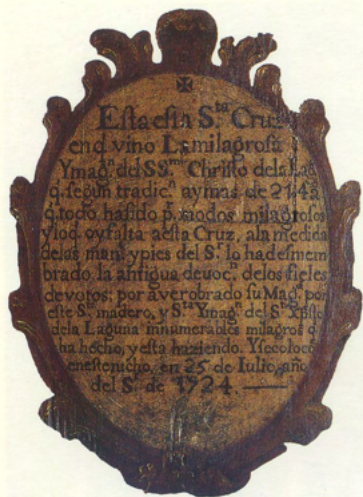 ✠
Esta esta S.ta Cruz
en q vino La milagrosa
Ymag.n del SS.mo Christo de la Lag.
q. segun tradic.n ay mas de 214 as
q. todo ha sido p.r modos milagrosos
y lo q. oy falta a esta Cruz, a la medida
de las man.s y pies del S.r lo ha desmem
brado la antigua devoc.n de los fieles
devotos; por aver obrado su Mag.d por
este S.to madero, y S.ta Ymag.n del S.mo Xpisto
de la Laguna innumerables milagros q.
ha hecho, y esta haziendo. Y se coloco
en este nicho, en 25 de Iulio, año
del S.r de 1724.